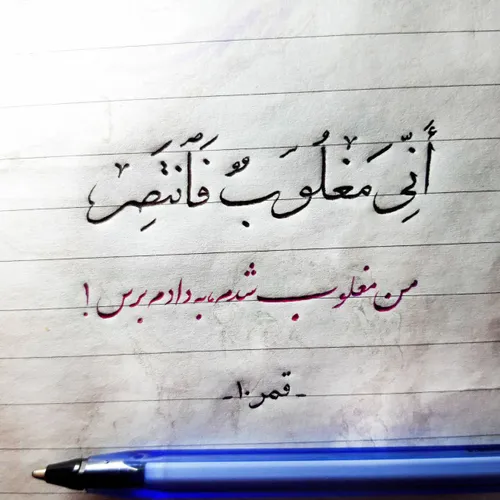 أَنِّي مَغْلُوَبٌ فَٱنتَصِرْ
من مغلوب شدم، به دادم برس !
- قمر ١٠ -